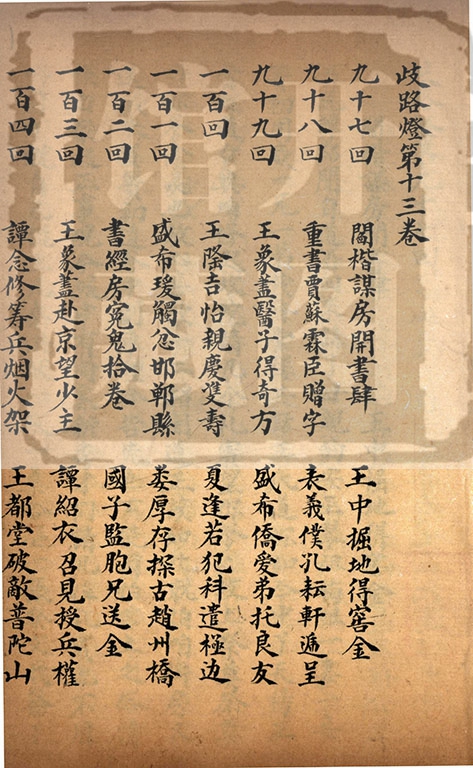 歧路燈第十三卷
九十七回 閻楷謀房開書肆 王中掘地得窖金
九十八回 重書賈蘇霖臣贈字 表義僕孔耘軒遞呈
九十九回 王象藎醫子得奇方 盛希僑愛弟托良友
一百回 王隆吉怡親慶雙壽 夏逢若犯科遣極边
一百一回 盛希瑗觸忿邯鄲縣 婁厚存探古趙州橋
一百二回 書經房冤鬼拾卷 國子監胞兄送金
一百三回 王象藎赴京望少主 譚紹衣召見授兵權
一百四回 譚念修籌兵烟火架 王都堂破敵普陀山